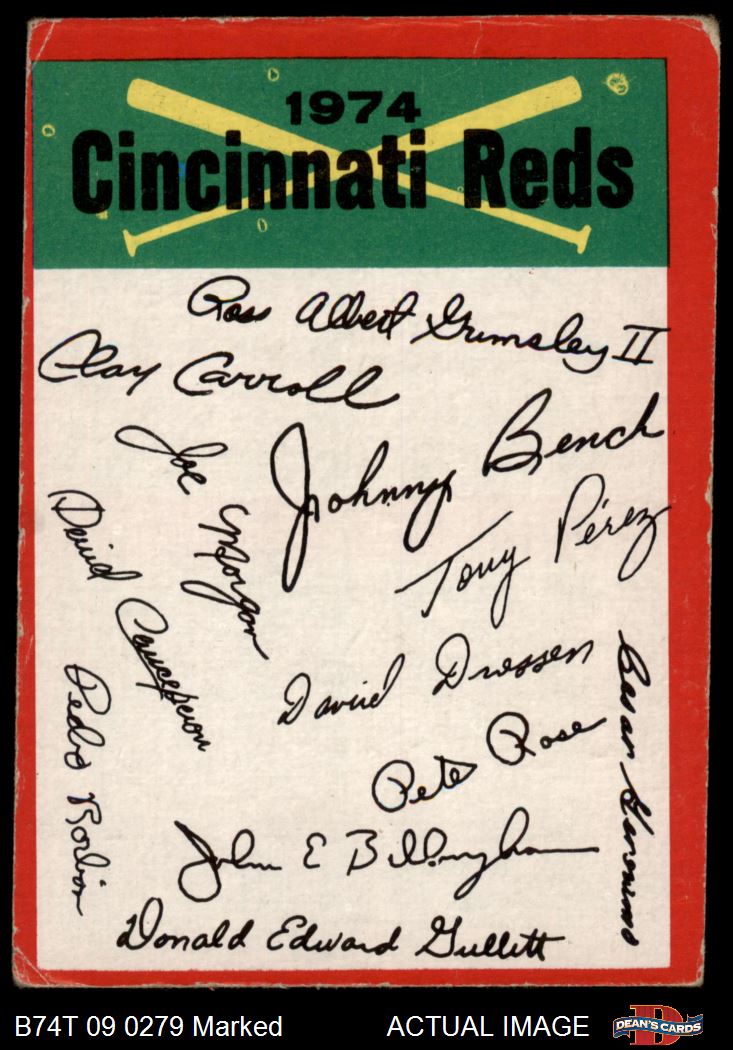 1974
Cincinnati Reds
Ross Albert Grimsley II
Clay Carroll
Johnny Bench
Joe Morgan
Tony Pérez
David Concepcion
David Driessen
Cesar Geronimo
Pete Rose
Pedro Borbon
John E Billingham
Donald Edward Gullett
B74T 09 0279 Marked
ACTUAL IMAGE
D
DEAN'S CARDS